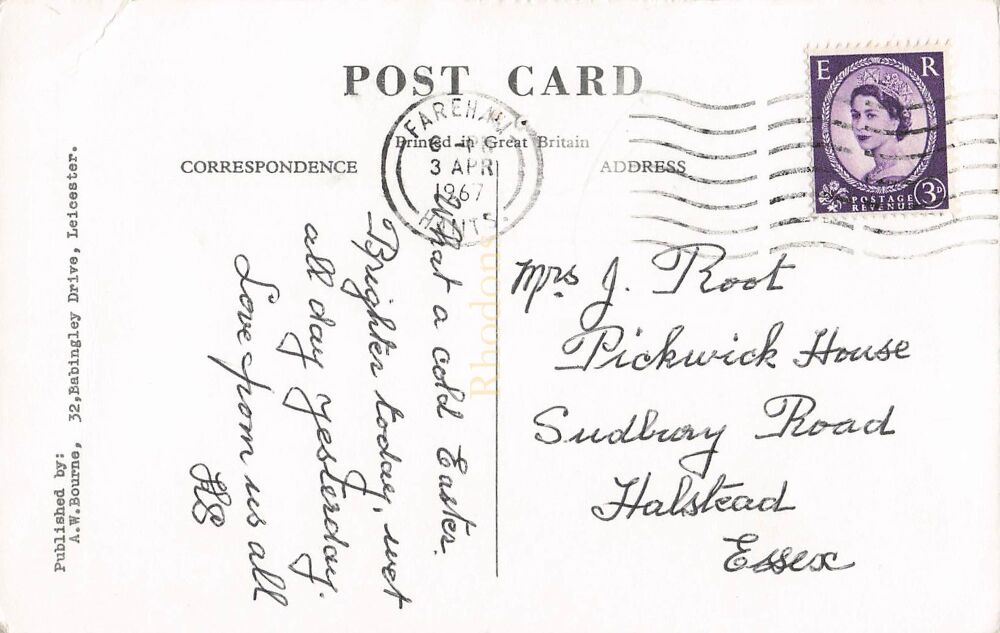 POST CARD
Printed in Great Britain
CORRESPONDENCE
ADDRESS
FAREHAM
3 APR
1967
HANTS.
E R
POSTAGE
REVENUE
3D
What a cold Easter.
Brighter today, wet
all day yesterday.
Love from us all
Mrs J. Root
Pickwick House
Sudbury Road
Halstead
Essex
Published by:
A.W.Bourne, 32,Babingley Drive, Leicester.
Rhodons